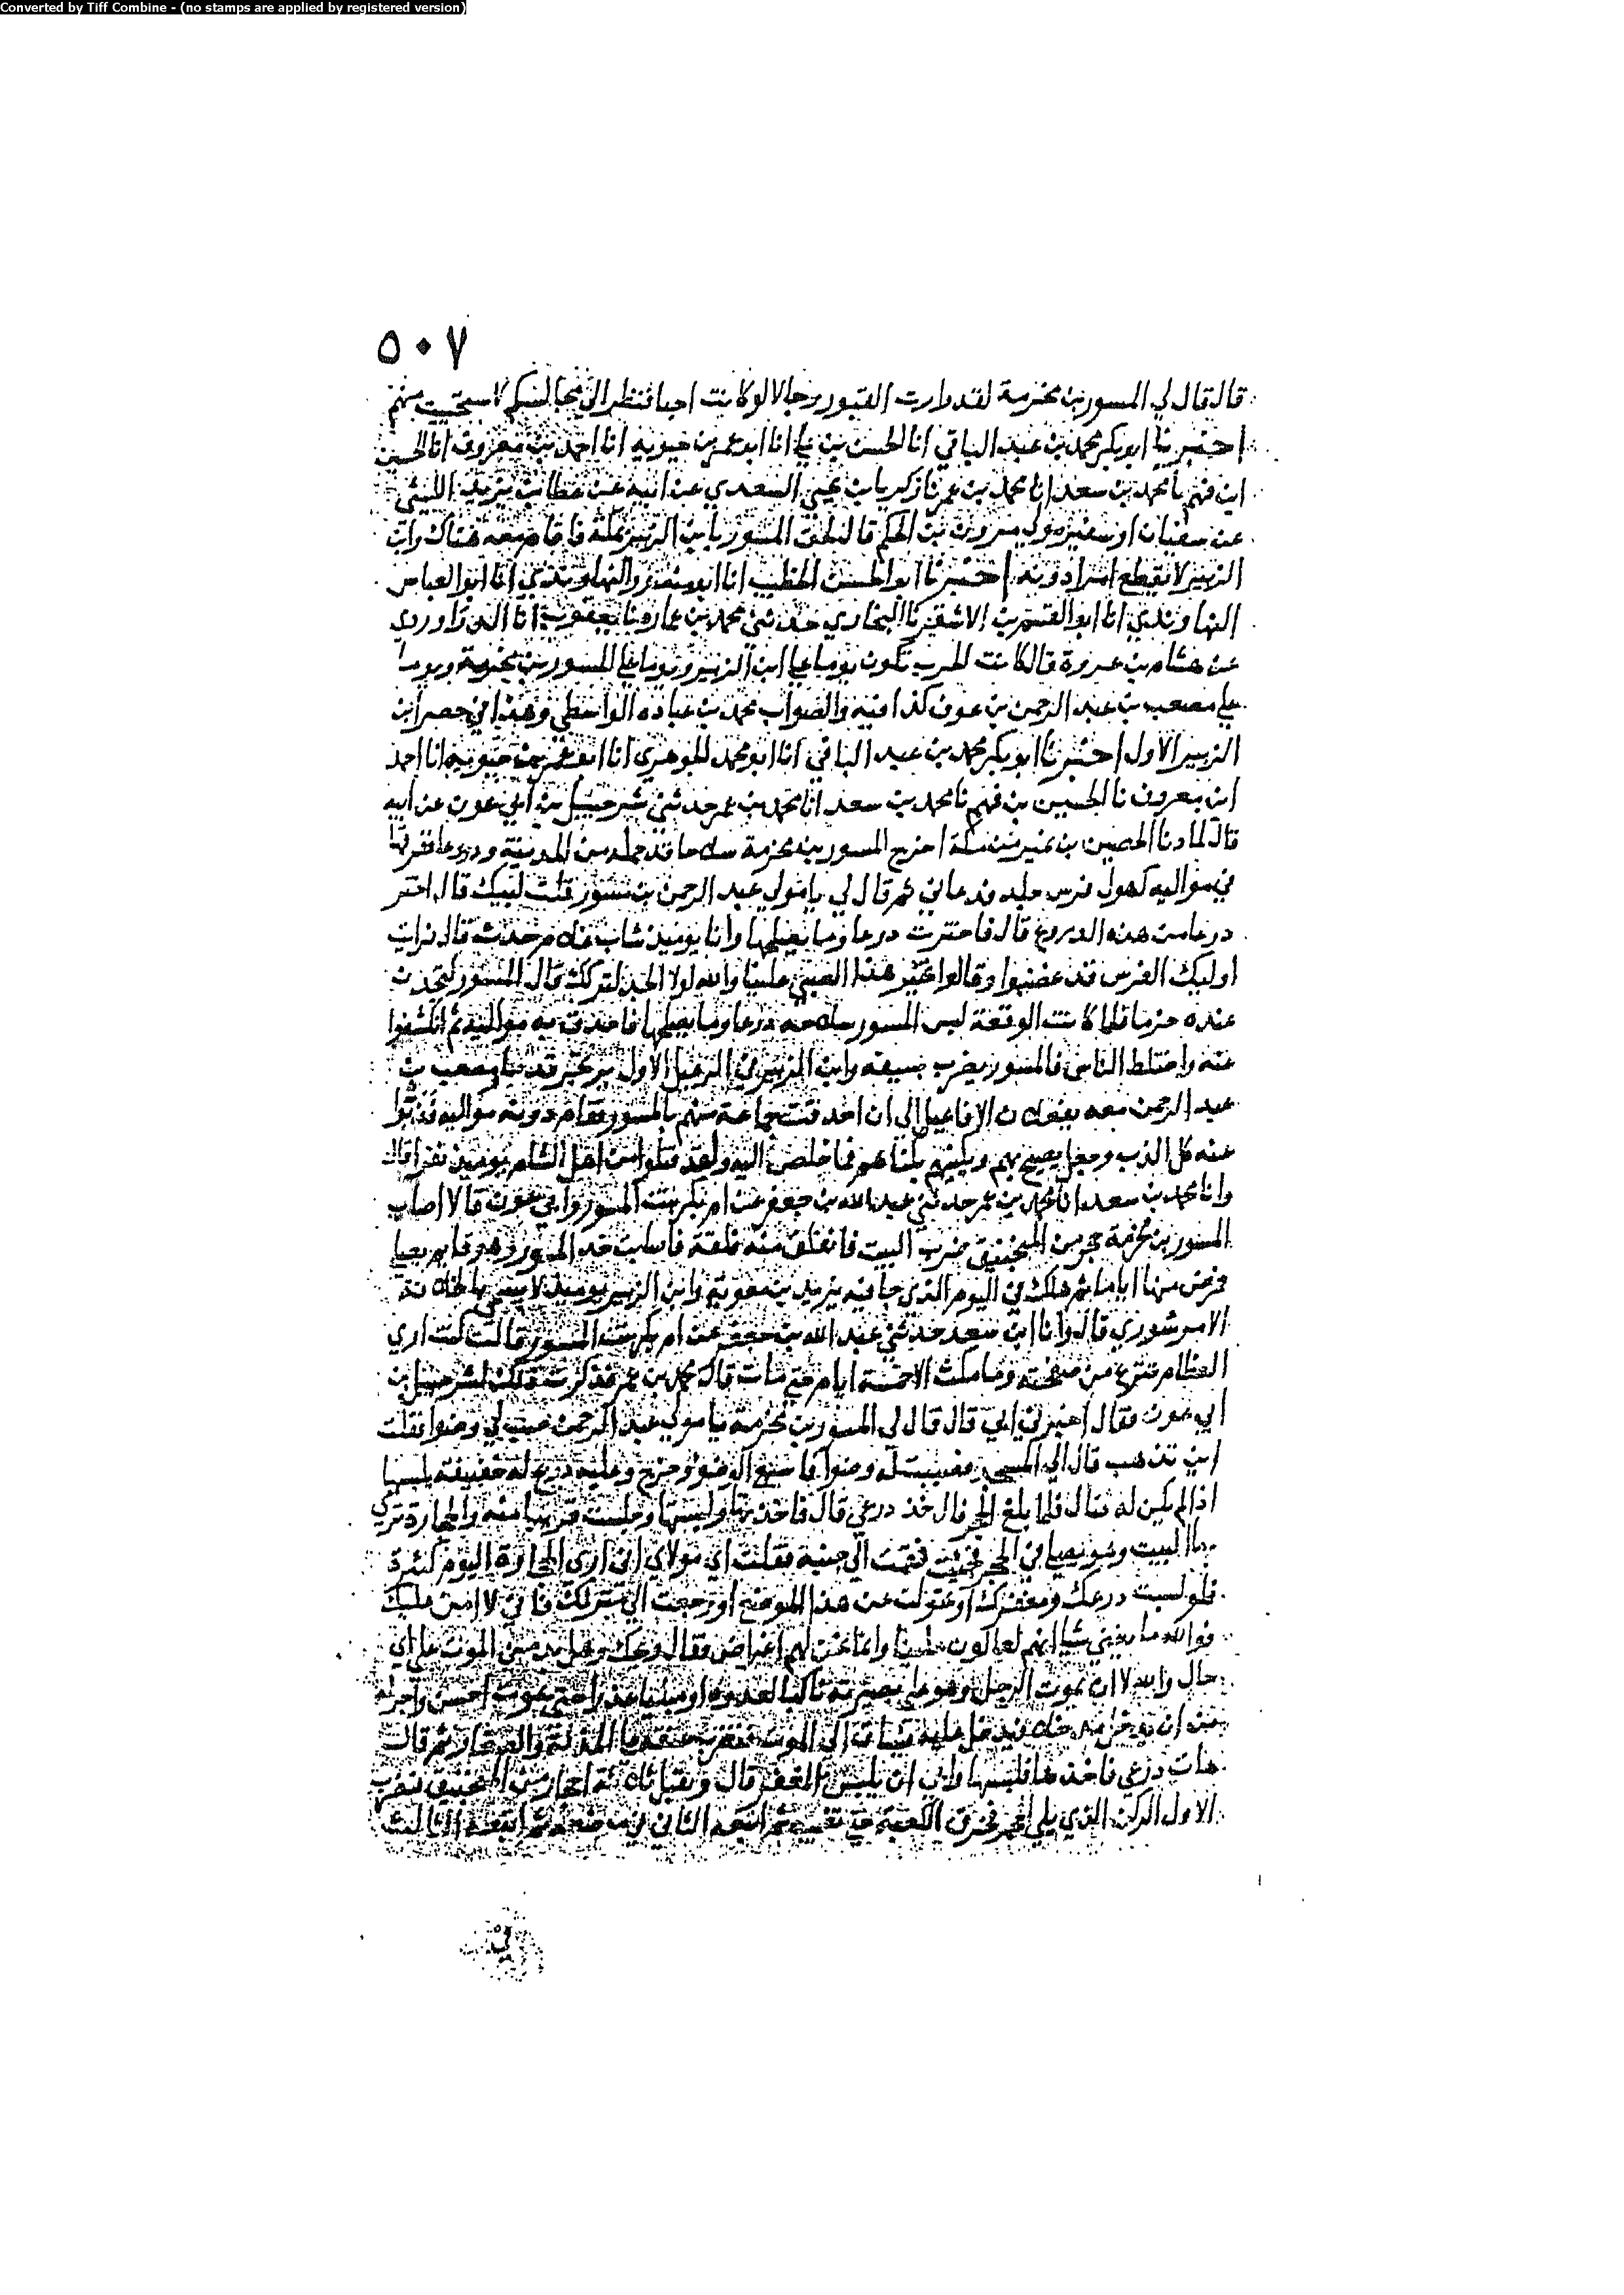 Converted by Tiff Combine - (no stamps are applied by registered version)
٥٠٧
قال قال لي المسور بن مخرمة لقد وارت القبور رجالا لو كانت احيا فتنظر الي مجالسكم لاستحييت منهم
اخبرنا ابو بكر محمد بن عبد الباقي انا الحسن بن علي انا ابو عمر بن حيويه انا احمد بن معروف انا الحسين
ابن فهم نا محمد بن سعد انا محمد بن عمر نا زكريا بن يحيي السعدي عن ابيه عن عطا بن يزيد الليثي
عن سفيان او سفير مولي مروان بن الحكم قال لحق المسور بابن الزبير بمكة فاقام معه هناك وابن
الزبير لا يقطع امرا دونه اخبرنا ابو الحسن الخطيب انا ابو منصور النهاوندي انا ابو العباس
النهاوندي انا ابو القسم بن الاشقر نا البخاري حدثني محمد بن عمار ونا يعقوب انا الدراوردي
عن هشام بن عروة قال كانت الحرب تكون يوما علي ابن الزبير ويوما علي المسور بن مخرمة ويوما
علي مصعب بن عبد الرحمن بن عوف كذا فيه والصواب محمد بن عبادة الواسطي وهذا في حصر ابن
الزبير الاول اخبرنا ابو بكر محمد بن عبد الباقي انا ابو محمد الجوهري انا ابو عمر بن حيويه انا احمد
ابن معروف نا الحسين بن فهم نا محمد بن سعد انا محمد بن عمر حدثني شرحبيل بن ابي عون عن ابيه
قال لما دنا الحصين بن نمير من مكة اخرج المسور بن مخرمة سلاحا قد حمله من المدينة ودروعا ففرقها
في مواليه كهول فرس جلد فدعاني ثم قال لي يا مولي عبد الرحمن بن مسور قلت لبيك قال اختر
درعا من هذه الدروع قال فاخترت درعا وما يصلحها وانا يوميذ شاب غلام حدث قال فرايت
اوليك الفرس قد غضبوا وقالوا تخير هذا الصبي علينا والله لو لا الجد لتركك قال المسور لتجدن
عنده حزما فلما كانت الوقعة لبس المسور سلاحه درعا وما يصلحها فاحدق به مواليه ثم انكشفوا
عنه واختلط الناس فالمسور يضرب بسيفه وابن الزبير في الرعيل الاول يرتجز قدما ومصعب بن
عبد الرحمن معه يفعلان الافاعيل الي ان احدقت جماعة منهم بالمسور فقام دونه مواليه فذبوا
عنه كل الذب وجعل يصيح بهم ويكنيهم بكناهم فما خلص اليه ولقد قتلوا من اهل الشام يوميذ نفرا قال
وانا محمد بن سعد انا محمد بن عمر حدثني عبد الله بن جعفر عن ام بكر بنت المسور وابي عون قالا اصاب
المسور بن مخرمة حجر من المنجنيق ضرب البيت فانفلق منه فلقة فاصابت خد المسور وهو قايم يصلي
فمرض منها اياما ثم هلك في اليوم الذي جا فيه يزيد بن معوية وابن الزبير يوميذ لا يسمي بالخلافة
الامر شوري قال وانا ابن سعد حدثني عبد الله بن جعفر عن ام بكر بنت المسور قالت كنت اري
العظام تنزع من صفحته وما مكث الا خمسة ايام حتي مات قال محمد بن عمر فذكرت ذلك لشرحبيل بن
ابي عون فقال اخبرني ابي قال قال لي المسور بن مخرمة يا مولي عبد الرحمن صب لي وضوا فقلت
اين تذهب قال الي المسجد فصببت له وضوا فاسبغ الوضوء وخرج وعليه درع له خفيفة يلبسها
اذا لم يكن له قتال فلما بلغ الحجر قال خذ درعي قال فاخذتها ولبستها وجلست قريبا منه والحجارة ترمي
بها البيت وهو يصلي في الحجر فجيت فقمت الي جنبه فقلت اي مولاي اني اري الحجارة اليوم كثيرة
فلو لبست درعك ومغفرك او تحولت عن هذا الموضع او رجعت الي منزلك فاني لا امن عليك
فوالله ما يغني شيا انهم لعالون علينا وانما نحن لهم اغراض فقال ويحك وهل بد من الموت علي اي
حال والله لان يموت الرجل وهو علي بصيرته ناكيا لعدوه او مبليا عذرا حتي يموت احسن
هات درعي فاخذها فلبسها وابي ان يلبس المغفر قال وتقبل ثلاثة احجار من المنجنيق فيضرب
الاول الركن الذي يلي الحجر فخرق الكعبة حتي تغيب ثم اتبعه الثاني في موضعه ثم اتبعه الثالث
في